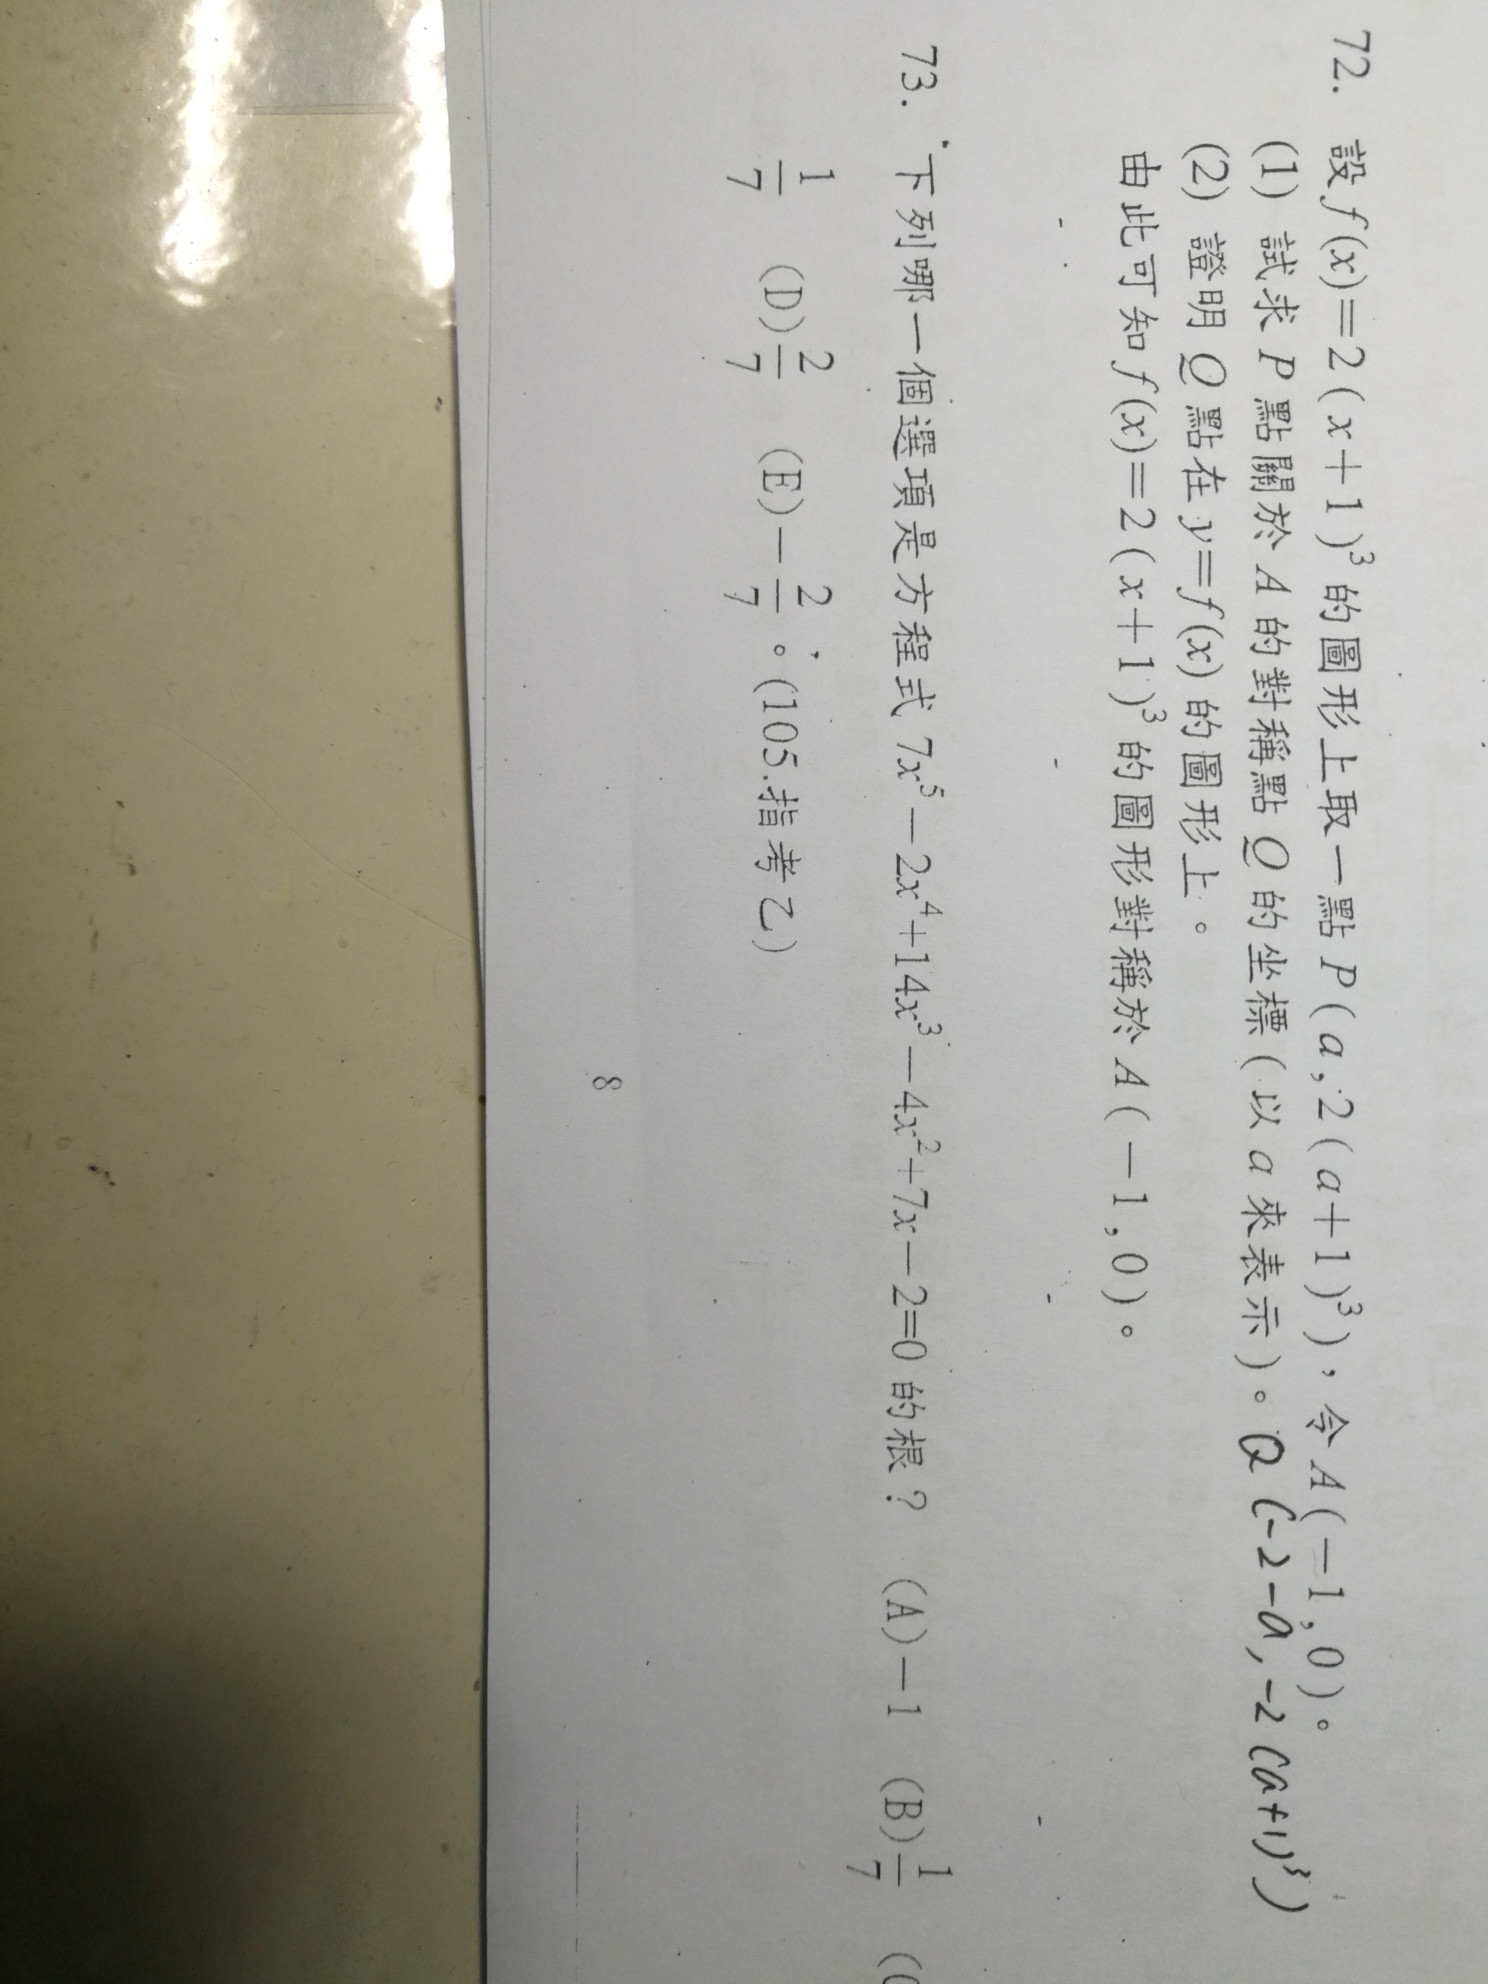 72. 設 f(x)=2(x+1)³ 的圖形上取一點 P(a,2(a+1)³),令 A(-1,0)。
(1) 試求 P 點關於 A 的對稱點 Q 的坐標(以 a 來表示)。Q(-2-a,-2(a+1)³)
(2) 證明 Q 點在 y=f(x) 的圖形上。
由此可知 f(x)=2(x+1)³ 的圖形對稱於 A(-1,0)。
73. 下列哪一個選項是方程式 7x⁵-2x⁴+14x³-4x²+7x-2=0 的根? (A)-1 (B)1/7
1/7 (D)2/7 (E)-2/7。(105.指考乙)
8